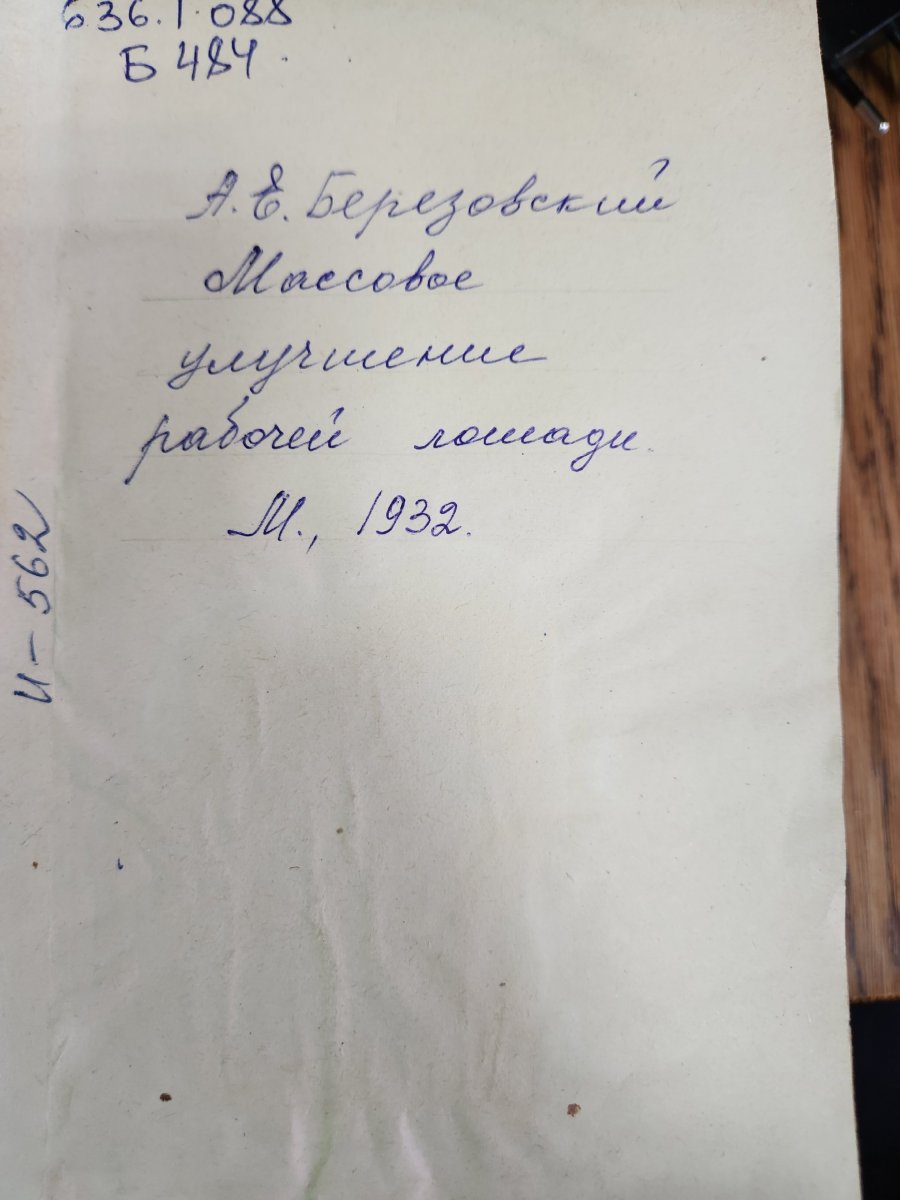 636.1.088
Б 484.
А.Е. Березовский
Массовое
улучшение
рабочей лошади.
М., 1932.
И-562